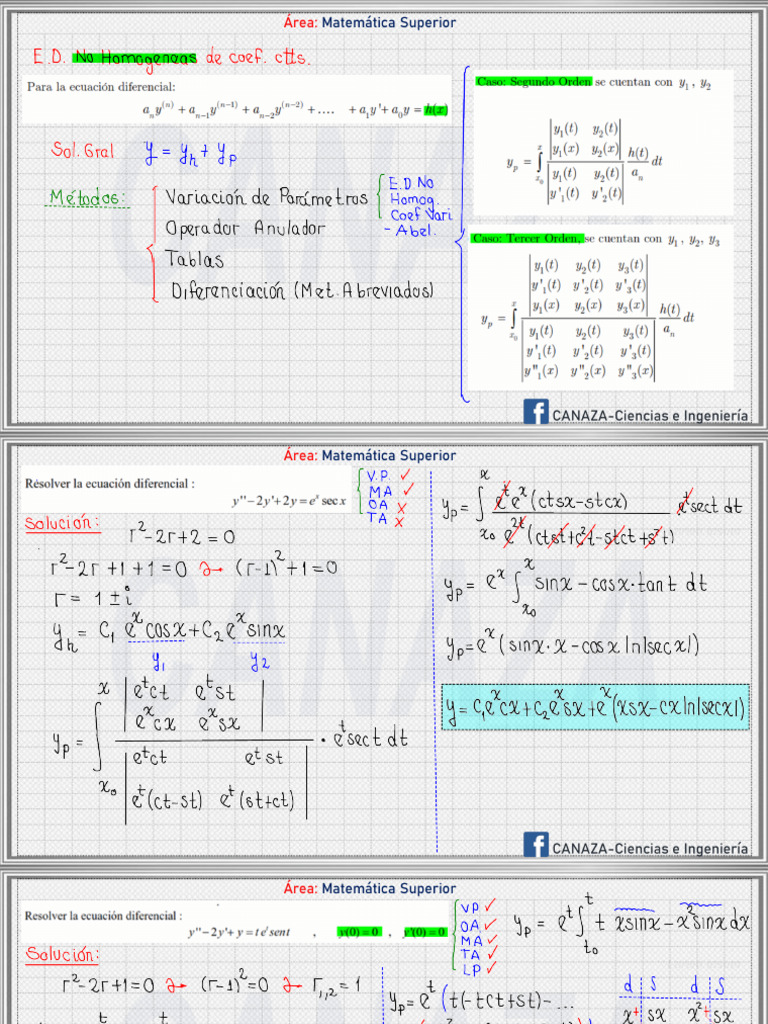 Área: Matemática Superior
E.D. No Homogeneas de coef. ctts.
Para la ecuación diferencial:
a_n y^(n) + a_{n-1} y^(n-1) + a_{n-2} y^(n-2) + .... + a_1 y' + a_0 y = h(x)
Sol. Gral y = y_h + y_p
Métodos:
Variación de Parámetros
E.D No
Homog.
Coef Vari
- Abel.
Operador Anulador
Tablas
Diferenciación (Met. Abreviados)
Caso: Segundo Orden se cuentan con y_1 , y_2
y_p = ∫_{x_0}^{x} |y_1(t) y_2(t); y_1(x) y_2(x)| / |y_1(t) y_2(t); y'_1(t) y'_2(t)| h(t)/a_n dt
Caso: Tercer Orden, se cuentan con y_1 , y_2, y_3
y_p = ∫_{x_0}^{x} |y_1(t) y_2(t) y_3(t); y'_1(t) y'_2(t) y'_3(t); y_1(x) y_2(x) y_3(x)| / |y_1(t) y_2(t) y_3(t); y'_1(t) y'_2(t) y'_3(t); y''_1(x) y''_2(x) y''_3(x)| h(t)/a_n dt
CANAZA-Ciencias e Ingeniería
Área: Matemática Superior
Resolver la ecuación diferencial :
y'' - 2y' + 2y = e^x sec x
V.P. ✓
MA ✓
OA ✗
TA ✗
Solución:
r^2 - 2r + 2 = 0
r^2 - 2r + 1 + 1 = 0 → (r-1)^2 + 1 = 0
r = 1 ± i
y_h = C_1 e^x cos x + C_2 e^x sin x
y_1 y_2
y_p = ∫_{x_0}^{x} |e^t ct e^t st; e^x cx e^x sx| / |e^t ct e^t st; e^t(ct-st) e^t(st+ct)| · e^t sect dt
y_p = ∫_{x_0}^{x} e^t e^x (ctsx - stcx) / e^{2t} (ctst + c^2t - stct + s^2t) e^t sect dt
y_p = e^x ∫_{x_0}^{x} sin x - cos x · tan t dt
y_p = e^x (sin x · x - cos x ln|sec x|)
y = C_1 e^x cx + C_2 e^x sx + e^x (xsx - cx ln|sec x|)
CANAZA-Ciencias e Ingeniería
Área: Matemática Superior
Resolver la ecuación diferencial :
y'' - 2y' + y = t e^t sent , y(0) = 0 , y'(0) = 0
VP ✓
OA ✓
MA ✓
TA ✓
LP ✓
Solución:
r^2 - 2r + 1 = 0 → (r-1)^2 = 0 → r_{1,2} = 1
y_p = e^t ∫_{t_0}^{t} t xsinx - x^2 sinx dx
y_p = e^t (t(-tct + st) - ...
d s d s
x + sx x^2 + sx